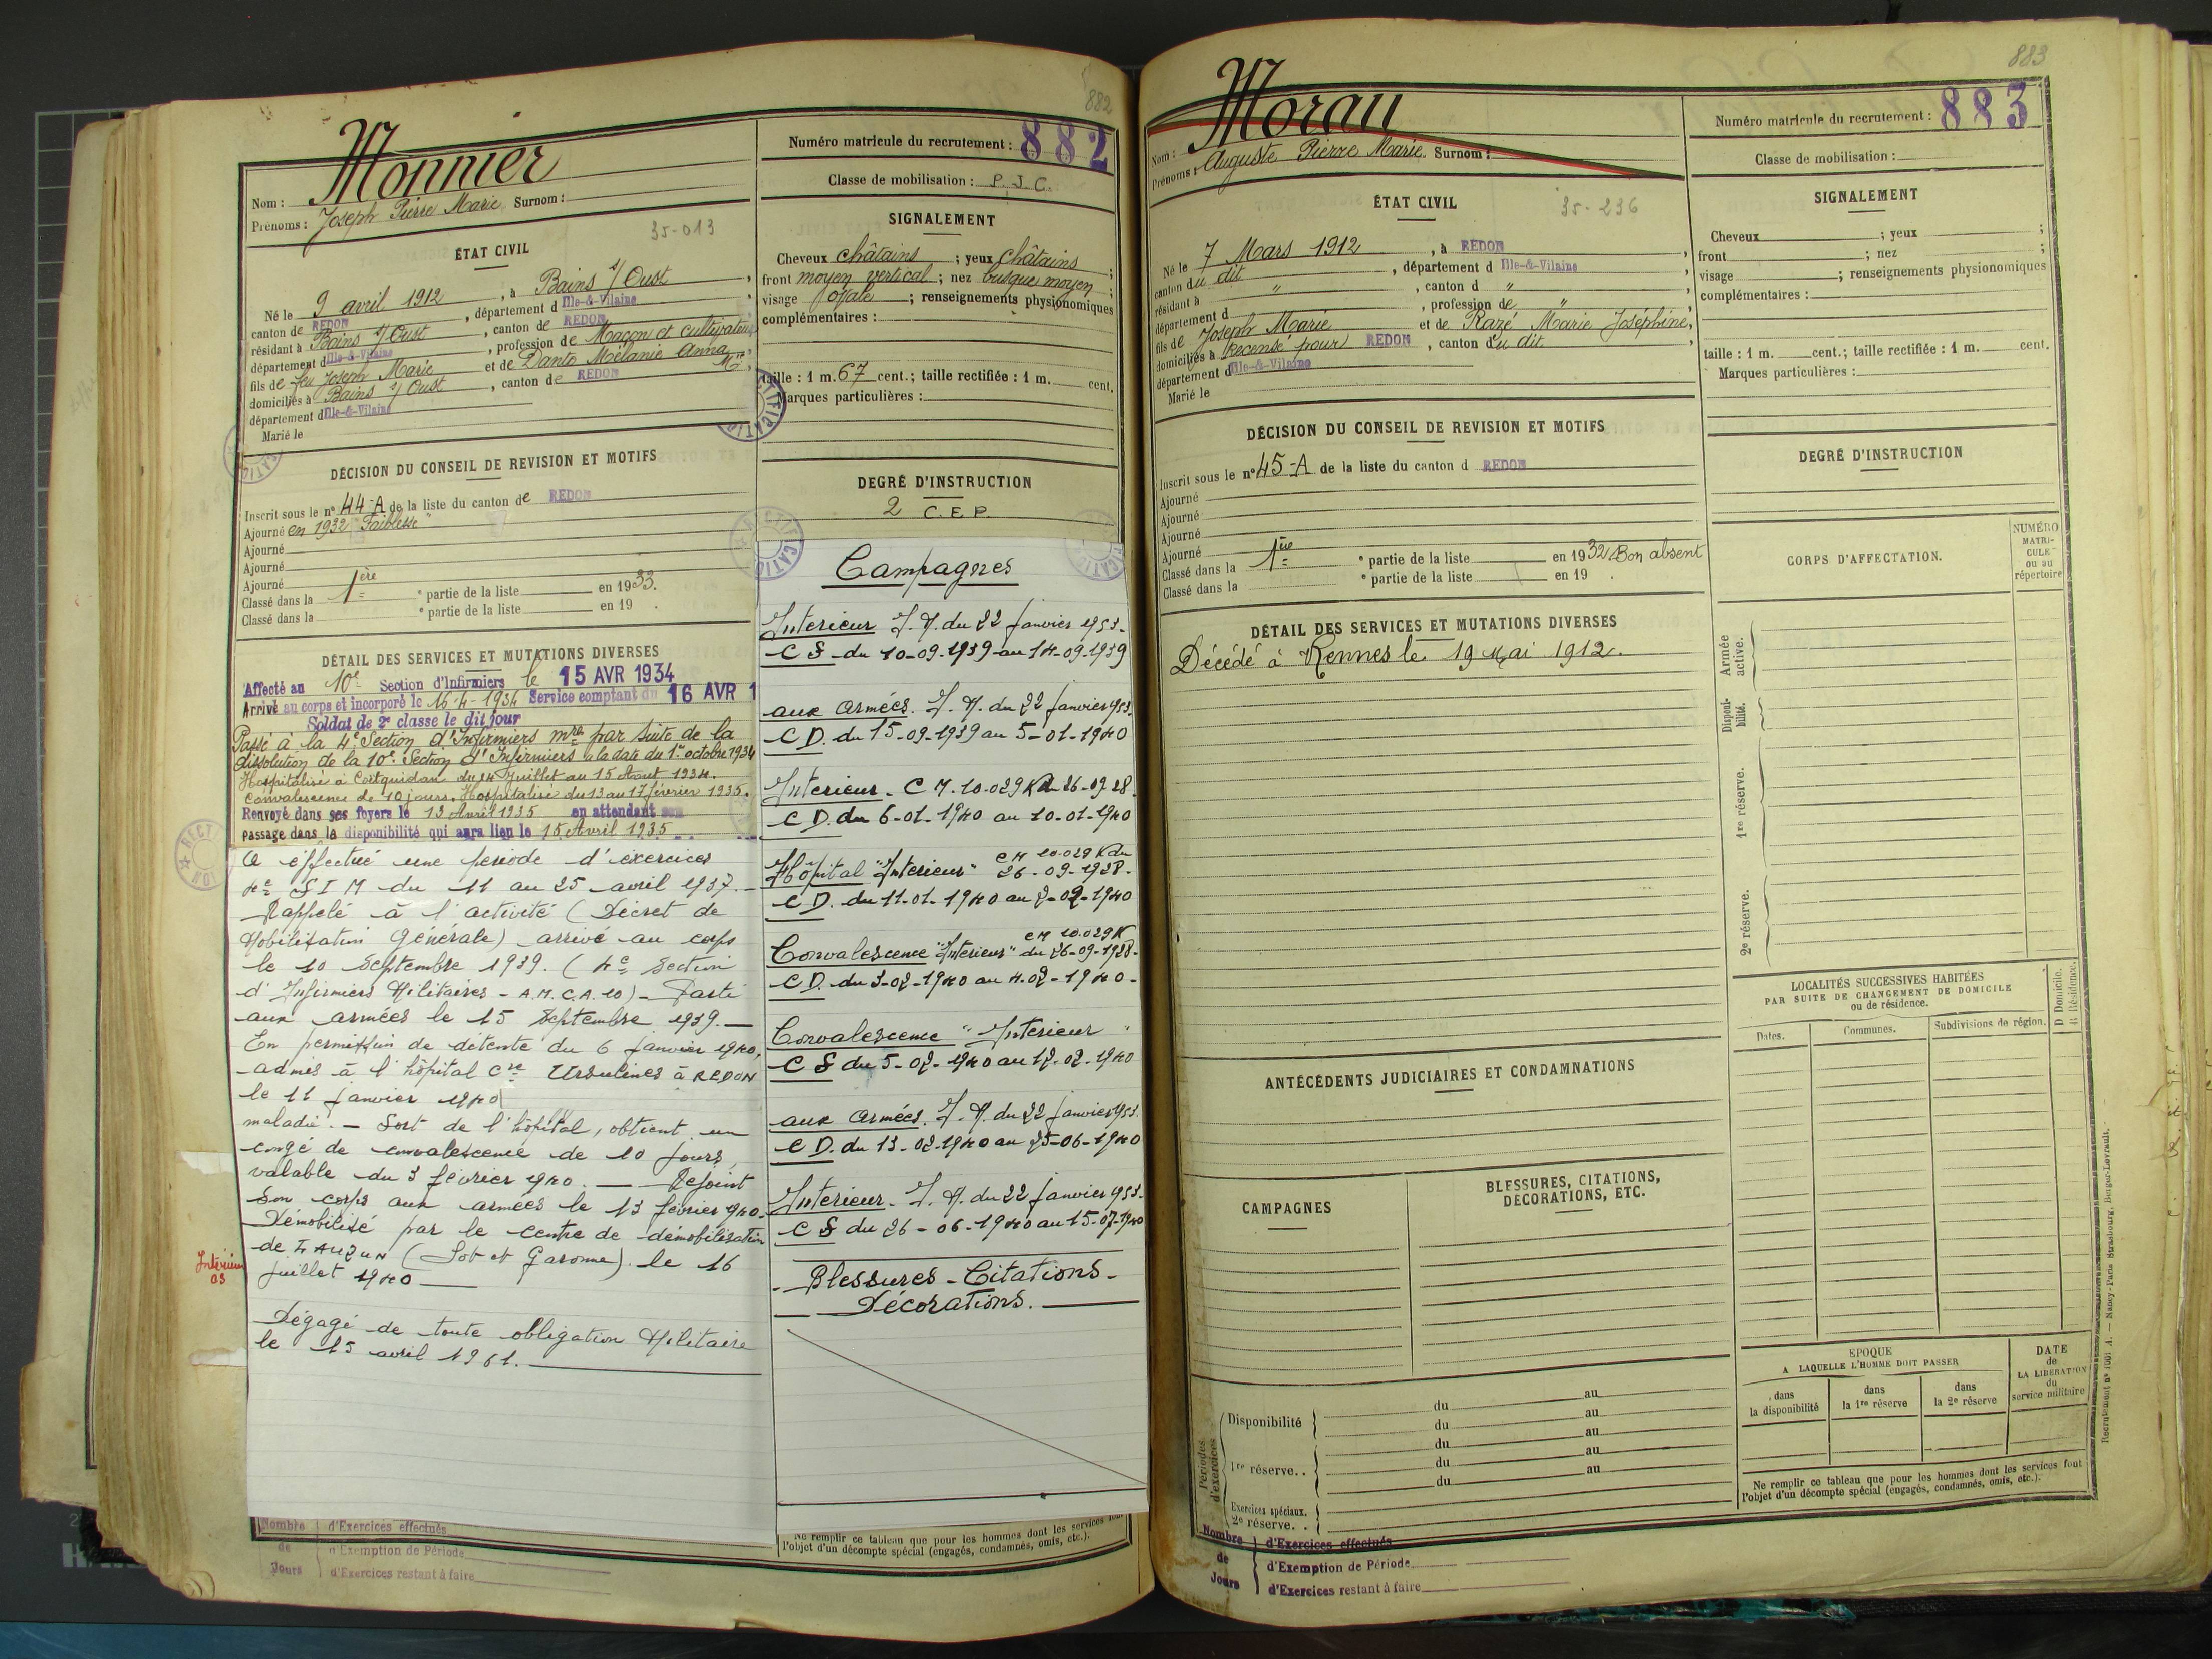 882
Monnier
Nom :
Prénoms : Joseph Pierre Marie Surnom :
Numéro matricule du recrutement : 882
Classe de mobilisation : P. J. C.
35-013
ÉTAT CIVIL
Né le 9 avril 1912, à Bains s/ Oust,
canton de REDON, département d Ille-&-Vilaine
résidant à Bains s/ Oust, canton de REDON
département d Ille-&-Vilaine, profession de Maçon et cultivateur
fils de feu Joseph Marie et de Danto Mélanie Anna Mie,
domiciliés à Bains s/ Oust, canton de REDON
département d Ille-&-Vilaine
Marié le
SIGNALEMENT
Cheveux châtains ; yeux châtains ;
front moyen vertical ; nez busqué moyen ;
visage ovale ; renseignements physionomiques
complémentaires :
taille : 1 m. 67 cent. ; taille rectifiée : 1 m. cent.
Marques particulières :
DÉCISION DU CONSEIL DE REVISION ET MOTIFS
Inscrit sous le n° 44-A de la liste du canton de REDON
Ajourné en 1932 "Faiblesse"
Ajourné
Ajourné
Ajourné
Classé dans la 1ère ° partie de la liste en 1933.
Classé dans la ° partie de la liste en 19 .
DEGRÉ D'INSTRUCTION
2 C. E. P.
DÉTAIL DES SERVICES ET MUTATIONS DIVERSES
Affecté au 10e Section d'Infirmiers le 15 AVR 1934
Arrivé au corps et incorporé le 16-4-1934 Service comptant du 16 AVR 1
Soldat de 2e classe le dit jour
Passé à la 4e Section d'Infirmiers mres par suite de la
dissolution de la 10e Section d'Infirmiers à la date du 1er octobre 1934
Hospitalisé à Coëtquidan du 24 Juillet au 15 Août 1934.
Convalescence de 10 jours. Hospitalisé du 13 au 17 février 1935.
Renvoyé dans ses foyers le 13 Avril 1935 en attendant son
passage dans la disponibilité qui aura lieu le 15 Avril 1935
A effectué une période d'exercices
4e S I M du 11 au 25 avril 1937.
Rappelé à l'activité (Décret de
Mobilisation Générale) arrivé au corps
le 10 Septembre 1939. (4e Section
d'Infirmiers Militaires - A.M.C.A. 10) - Parti
aux armées le 15 Septembre 1939. —
En permission de détente du 6 Janvier 1940,
admis à l'hôpital Cre Ursulines à REDON
le 11 janvier 1940
maladie. — Sort de l'hôpital, obtient un
congé de convalescence de 10 jours,
valable du 3 février 1940. — Rejoint
son corps aux armées le 13 février 1940.
Démobilisé par le centre de démobilisation
de LAUZUN (Lot et Garonne). le 16
juillet 1940
Dégagé de toute obligation Militaire
le 15 avril 1961.
Campagnes
Interieur I. M. du 22 Janvier 1953.
C S du 10-09-1939 au 14-09-1939
aux Armées. I. M. du 22 Janvier 1953.
C D. du 15-09-1939 au 5-01-1940
Interieur - C M. 10.029 K du 26-09-28.
C D. du 6-01-1940 au 10-01-1940
Hôpital "Interieur" C M 10.029 K du
26-09-1928.
C D. du 11-01-1940 au 2-02-1940
Convalescence "Interieur" C M 10.029 K
du 26-09-1928.
C D. du 3-02-1940 au 4-02-1940 -
Convalescence "Interieur"
C S du 5-02-1940 au 12-02-1940
aux Armées. I. M. du 22 Janvier 1953.
C D. du 13-02-1940 au 25-06-1940
Interieur - I. M. du 22 Janvier 1953.
C S du 26-06-1940 au 15-07-1940
Blessures - Citations -
Décorations.
Nombre de Jours
d'Exercices effectués
d'Exemption de Période
d'Exercices restant à faire
Ne remplir ce tableau que pour les hommes dont les services font
l'objet d'un décompte spécial (engagés, condamnés, omis, etc.).
883
Moran
Nom :
Prénoms : Auguste Pierre Marie Surnom :
Numéro matricule du recrutement : 883
Classe de mobilisation :
ÉTAT CIVIL
35-236
Né le 7 Mars 1912, à REDON
canton du dit, département d Ille-&-Vilaine
résidant à ", canton d "
département d , profession de "
fils de Joseph Marie et de Razé Marie Joséphine,
domiciliés à Recensé pour REDON, canton du dit
département d Ille-&-Vilaine
Marié le
SIGNALEMENT
Cheveux ; yeux ;
front ; nez ;
visage ; renseignements physionomiques
complémentaires :
taille : 1 m. cent. ; taille rectifiée : 1 m. cent.
Marques particulières :
DÉCISION DU CONSEIL DE REVISION ET MOTIFS
Inscrit sous le n° 45-A de la liste du canton d REDON
Ajourné
Ajourné
Ajourné
Ajourné
Classé dans la 1ère ° partie de la liste en 1932 Bon absent
Classé dans la ° partie de la liste en 19 .
DEGRÉ D'INSTRUCTION
CORPS D'AFFECTATION.
NUMÉRO MATRI-CULE ou au répertoire
Armée active.
Disponi-bilité.
1re réserve.
2e réserve.
DÉTAIL DES SERVICES ET MUTATIONS DIVERSES
Décédé à Rennes le 19 Mai 1912.
LOCALITÉS SUCCESSIVES HABITÉES
PAR SUITE DE CHANGEMENT DE DOMICILE
ou de résidence.
Dates. Communes. Subdivisions de région. D Domicile. R Résidence.
ANTÉCÉDENTS JUDICIAIRES ET CONDAMNATIONS
CAMPAGNES
BLESSURES, CITATIONS,
DÉCORATIONS, ETC.
Périodes d'exercices
Disponibilité du au
du au
du au
1re réserve.. du au
du au
Exercices spéciaux.
2e réserve..
EPOQUE
A LAQUELLE L'HOMME DOIT PASSER
dans la disponibilité
dans la 1re réserve
dans la 2e réserve
DATE de LA LIBÉRATION du service militaire
Ne remplir ce tableau que pour les hommes dont les services font
l'objet d'un décompte spécial (engagés, condamnés, omis, etc.).
Nombre de Jours
d'Exercices effectués
d'Exemption de Période
d'Exercices restant à faire